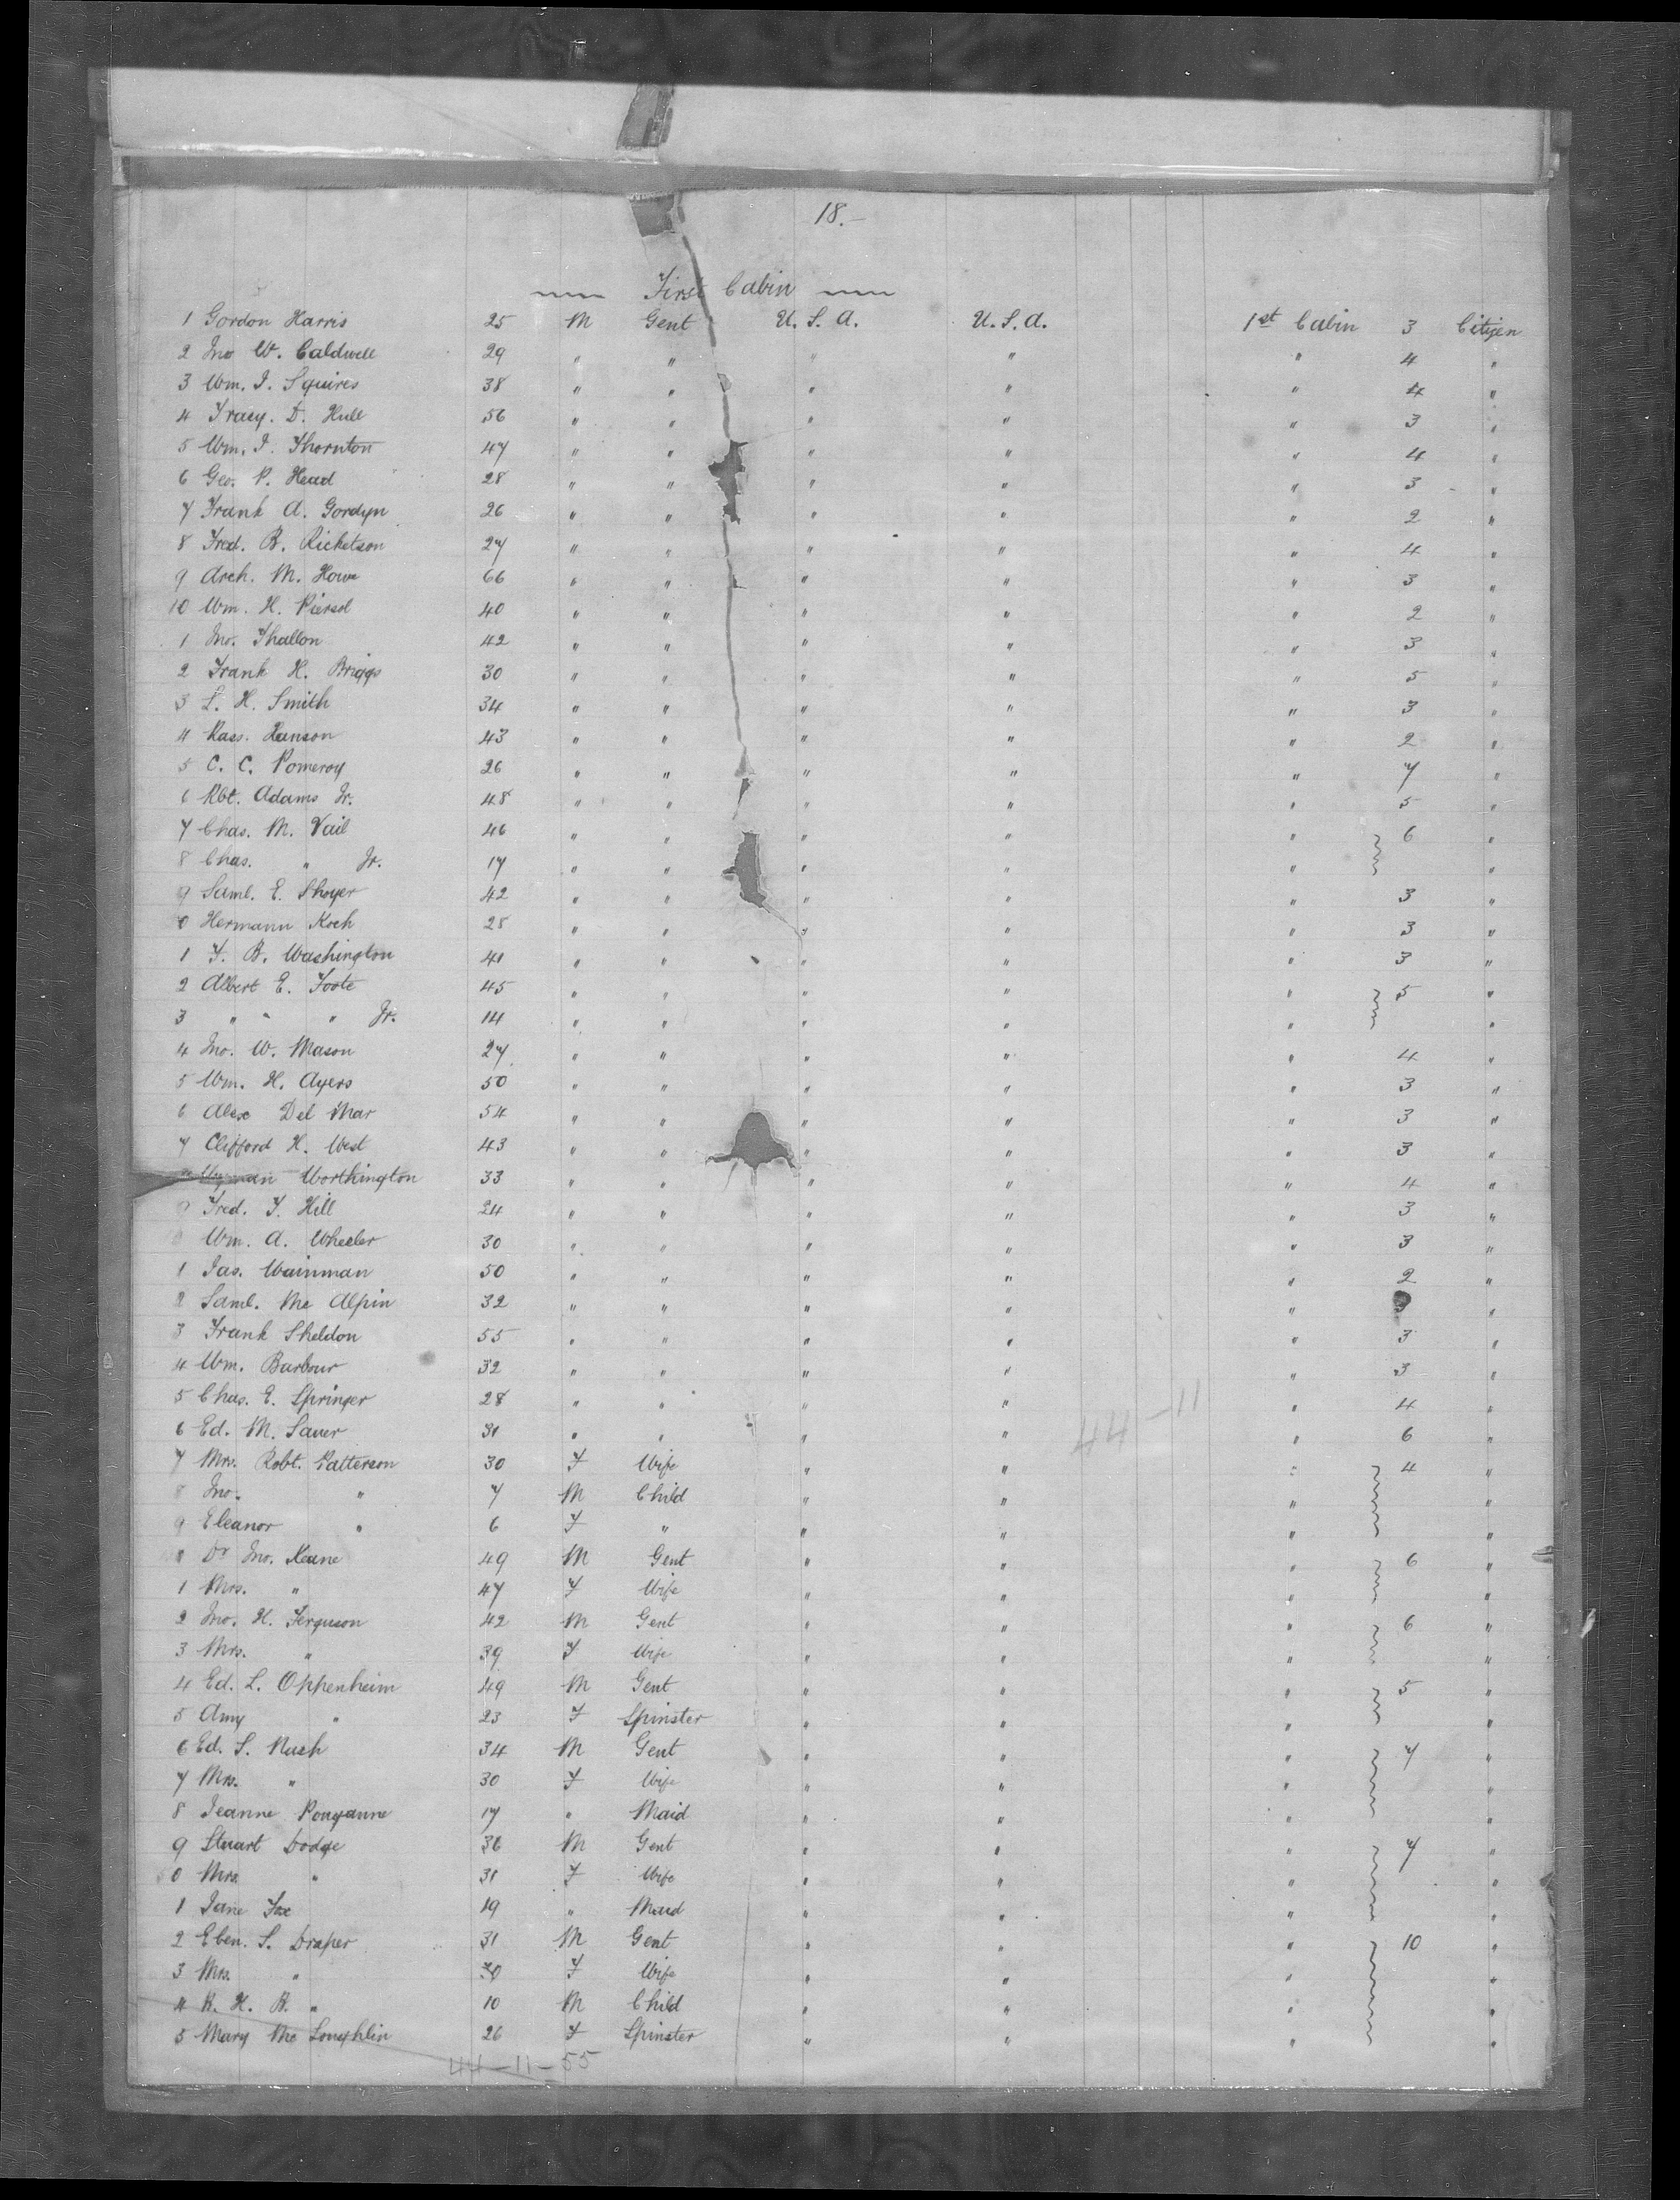 18.-
First Cabin
1 Gordon Harris 25 M Gent U. S. A. U. S. A. 1st Cabin 3 Citizen
2 Jno W. Caldwell 29 " " " " " 4 "
3 Wm. I. Squires 38 " " " " " 4 "
4 Tracy. D. Hull 56 " " " " " 3 "
5 Wm. I. Thornton 47 " " " " " 4 "
6 Geo. P. Head 28 " " " " " 3 "
7 Frank A. Gordyn 26 " " " " " 2 "
8 Fred. B. Ricketson 27 " " " " " 4 "
9 Arch. M. Howe 66 " " " " " 3 "
10 Wm. H. Piersol 40 " " " " " 2 "
1 Jno. Thallon 42 " " " " " 3 "
2 Frank H. Briggs 30 " " " " " 5 "
3 L. H. Smith 34 " " " " " 3 "
4 Rass. Hanson 43 " " " " " 2 "
5 C. C. Pomeroy 26 " " " " " 7 "
6 Rbt. Adams Jr. 48 " " " " " 5 "
7 Chas. M. Vail 46 " " " " " 6 "
8 Chas. " Jr. 17 " " " " " "
9 Saml. E. Shoyer 42 " " " " " 3 "
0 Hermann Koch 28 " " " " " 3 "
1 F. B. Washington 41 " " " " " 3 "
2 Albert E. Foote 45 " " " " " 5 "
3 " " " Jr. 14 " " " " " "
4 Jno. W. Mason 27 " " " " " 4 "
5 Wm. H. Ayers 50 " " " " " 3 "
6 Alex Del Mar 54 " " " " " 3 "
7 Clifford H. West 43 " " " " " 3 "
Worthington 33 " " " " " 4 "
9 Fred. T. Hill 24 " " " " " 3 "
0 Wm. A. Wheeler 30 " " " " " 3 "
1 Jas. Wainman 50 " " " " " 2 "
2 Saml. Mc Alpin 32 " " " " " 3 "
3 Frank Sheldon 55 " " " " " 3 "
4 Wm. Barbour 32 " " " " " 3 "
5 Chas. E. Springer 28 " " " " " 4 "
44-11
6 Ed. M. Sauer 31 " " " " " 6 "
7 Mrs. Robt. Patterson 30 F Wife " " " 4 "
8 Jno. " 7 M Child " " " "
9 Eleanor " 6 F " " " " "
0 Dr Jno. Keane 49 M Gent " " " 6 "
1 Mrs. " 47 F Wife " " " "
2 Jno. H. Ferguson 42 M Gent " " " 6 "
3 Mrs. " 39 F Wife " " " "
4 Ed. L. Oppenheim 49 M Gent " " " 5 "
5 Amy " 23 F Spinster " " " "
6 Ed. S. Nash 34 M Gent " " " 7 "
7 Mrs. " 30 F Wife " " " "
8 Jeanne Pouyanne 17 " Maid " " " "
9 Stuart Dodge 36 M Gent " " " 7 "
50 Mrs. " 31 F Wife " " " "
1 Jane Fox 19 " Maid " " " "
2 Eben. S. Draper 31 M Gent " " " 10 "
3 Mrs. " 30 F Wife " " " "
4 B. H. B. " 10 M Child " " " "
5 Mary Mc Loughlin 26 F Spinster " " " "
44-11-55